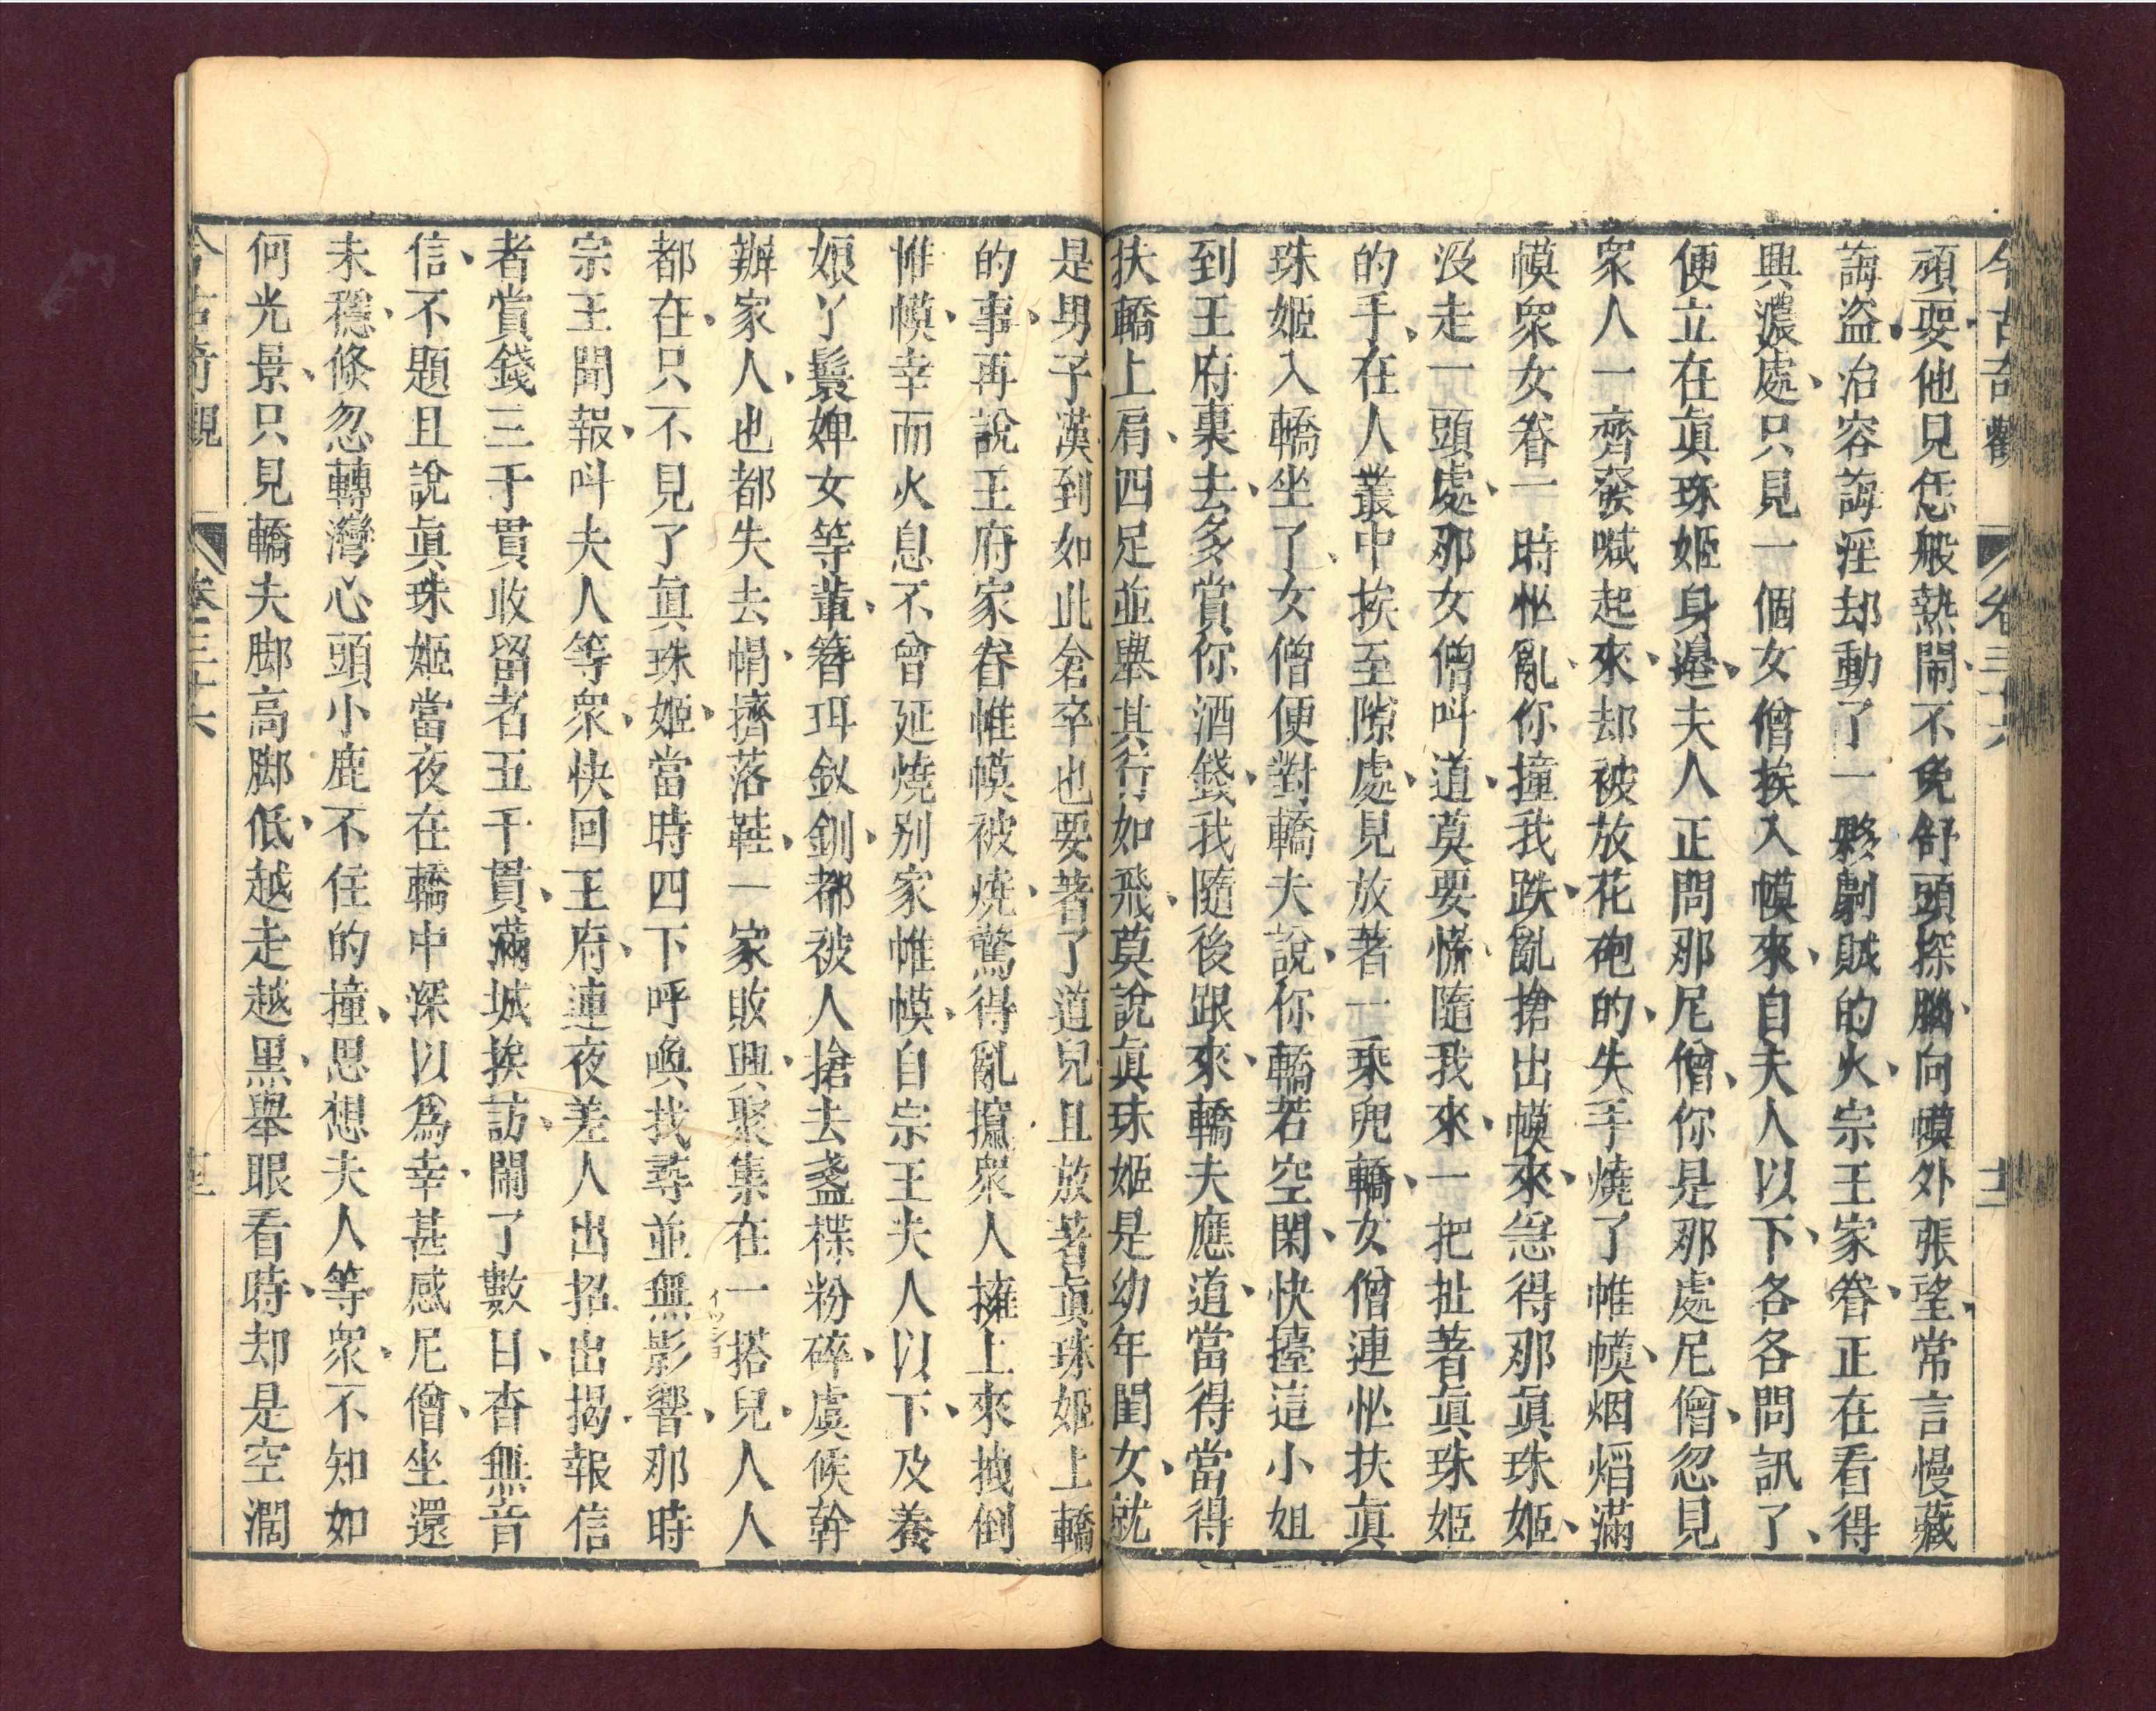 今古奇觀 卷三十六 十二
頑耍他兄恁般熱鬧不免舒頭探腦向幙外張望常言慢藏
誨盜冶容誨淫却動了一夥劇賊的火宗王家眷正在看得
興濃處只見一個女僧挨入幙來自夫人以下各各問訊了
便立在眞珠姬身邉夫人正問那尼僧你是那處尼僧忽見
衆人一齊發喊起來却被放花砲的失手燒了帷幙烟焰滿
幙衆女眷一時怭亂你撞我跌亂搶出幙來急得那眞珠姬
没走一頭處那女僧呌道莫要慌隨我來一把扯著眞珠姬
的手在人叢中挨至隙處見放著一乗兜轎女僧連怭扶眞
珠姬入轎坐了女僧便對轎夫說你轎若空閑快擡這小姐
到王府裏去多賞你酒錢我隨後跟來轎夫應道當得當得
扶轎上肩四足並舉其行如飛莫說眞珠姬是幼年閨女就
是男子漢到如此倉卒也要著了道兒且放著眞珠姬上轎
的事再說王府家眷帷幙被燒驚得亂攛衆人擁上來拽倒
帷幙幸而火息不曾延燒别家帷幙自宗王夫人以下及養
娘丫鬟婢女等輩簪珥釵釧都被人搶去盞楪粉碎虞候幹
辦家人也都失去帽擠落鞋一家敗興聚集在一搭兒人人
イツシヨ
都在只不見了眞珠姬當時四下呼喚找尋並無影響那時
宗王聞報呌夫人等衆快回王府連夜差人出招出揭報信
者賞錢三千貫收留者五千貫滿城挨訪鬧了數日杳無音
信不題且說眞珠姬當夜在轎中深以爲幸甚感尼僧坐還
未穩倐忽轉灣心頭小鹿不住的撞思想夫人等衆不知如
何光景只見轎夫脚高脚低越走越黑舉眼看時却是空濶
今古奇觀 卷三十六 十二